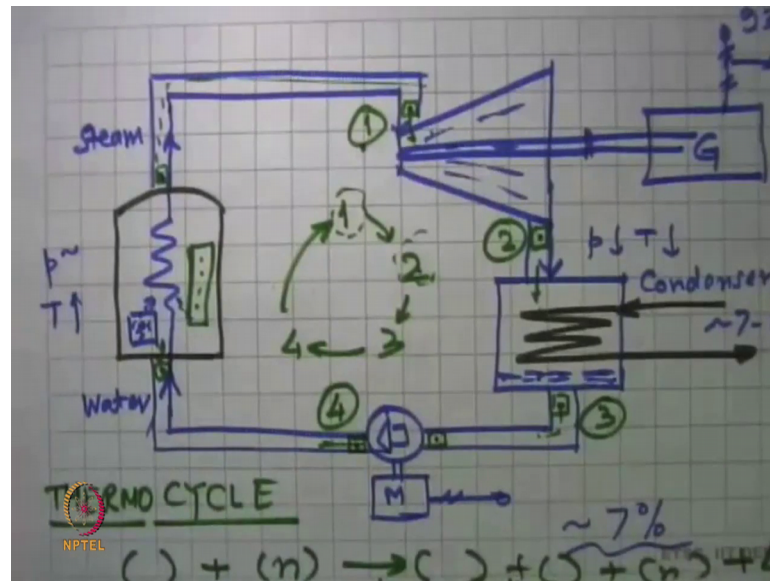 Steam
1
G
1
2
p↓ T↓
Condenser
p~
T↑
2
~7-
4 ← 3
Water
4
3
M
THERMO CYCLE
NPTEL
~ 7%
( ) + (n) → ( ) + ( ) + (n) +